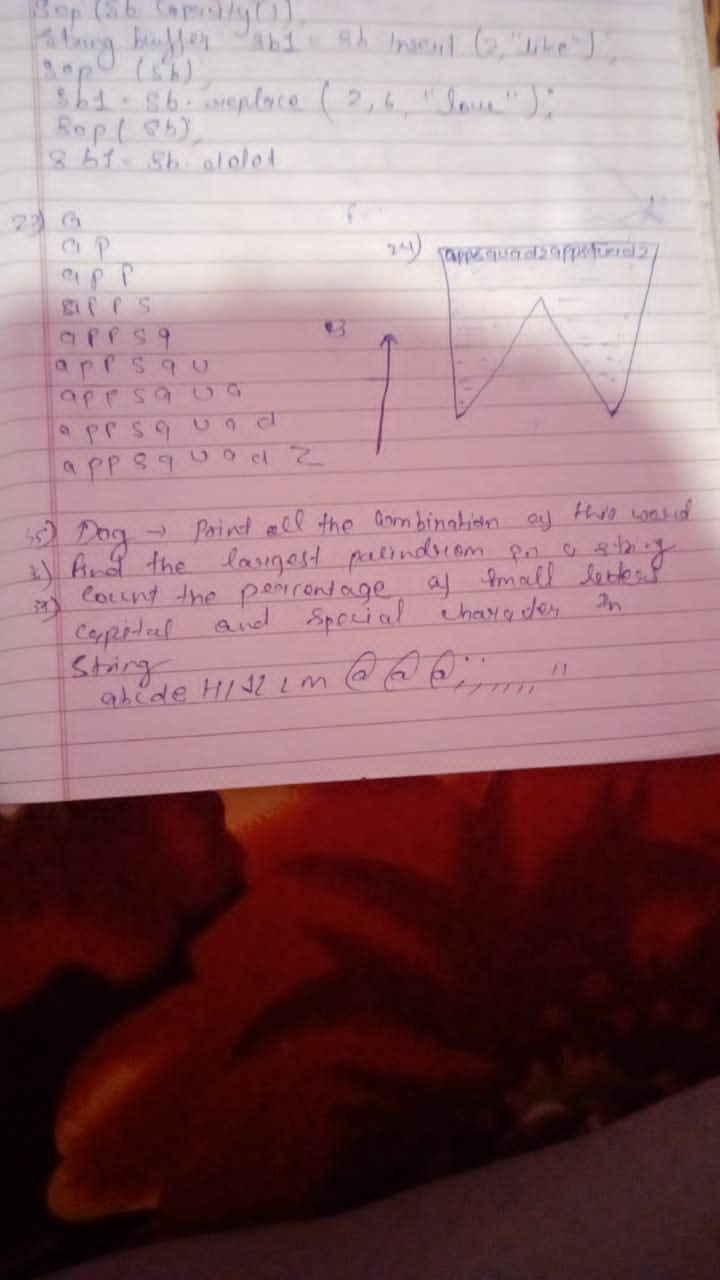 Sop (Sb Capacity())
String buffer sb1 = sb insert (2, "like");
Sop (sb)
sb1 = sb. replace ( 2, 6, "love" );
Sop ( sb)
sb1 = sb. delet
23) a
a p
a p p
a p p s
a p p s q
a p p s q u
a p p s q u a
a p p s q u a d
a p p s q u a d z
24) appsquadzappsquadz
Dog → Print all the Combination of this word
find the largest palindrom in a string
Count the percentage of small letters
Capital and Special character In
String